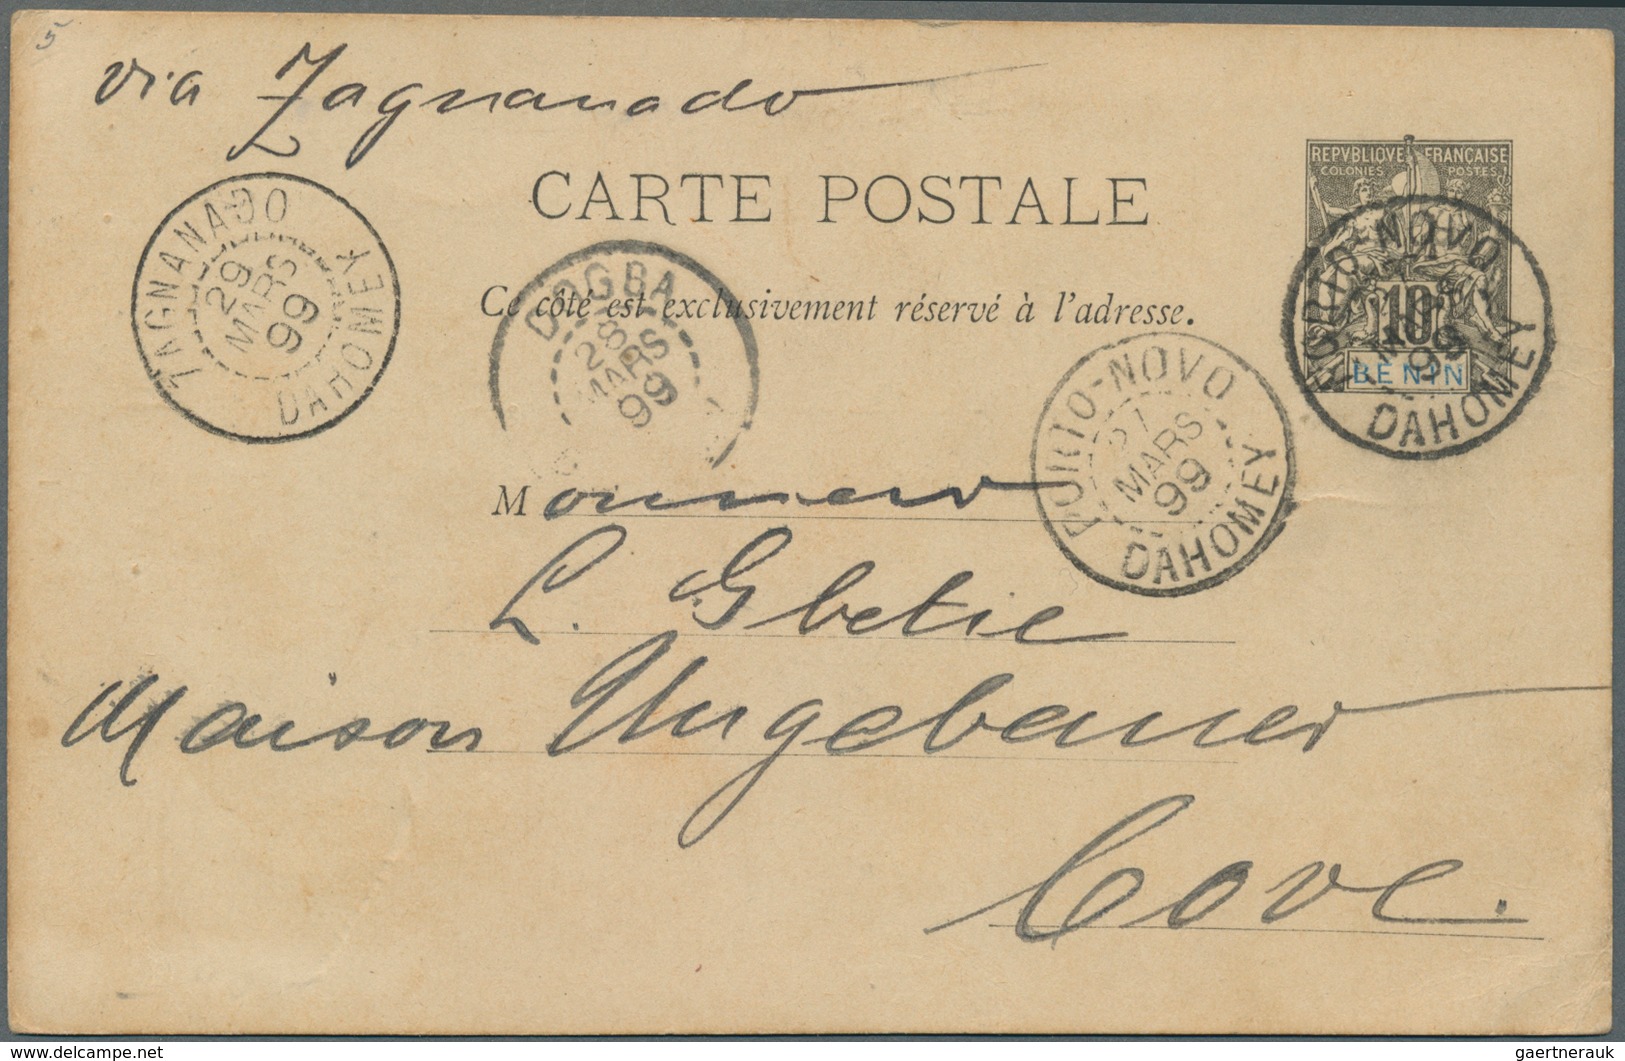 5
via Zagnanado
CARTE POSTALE
REPVBLIQVE FRANÇAISE
COLONIES POSTES
10
BENIN
PORTO-NOVO
MARS
99
DAHOMEY
ZAGNANADO
29
MARS
99
DAHOMEY
DOGBA
28
MARS
99
Ce côté est exclusivement réservé à l'adresse.
PORTO-NOVO
MARS
99
DAHOMEY
Monsieur
L. Gbetie
Maison Ungebauer
Cove.
© www.delcampe.net
gaertnerauk